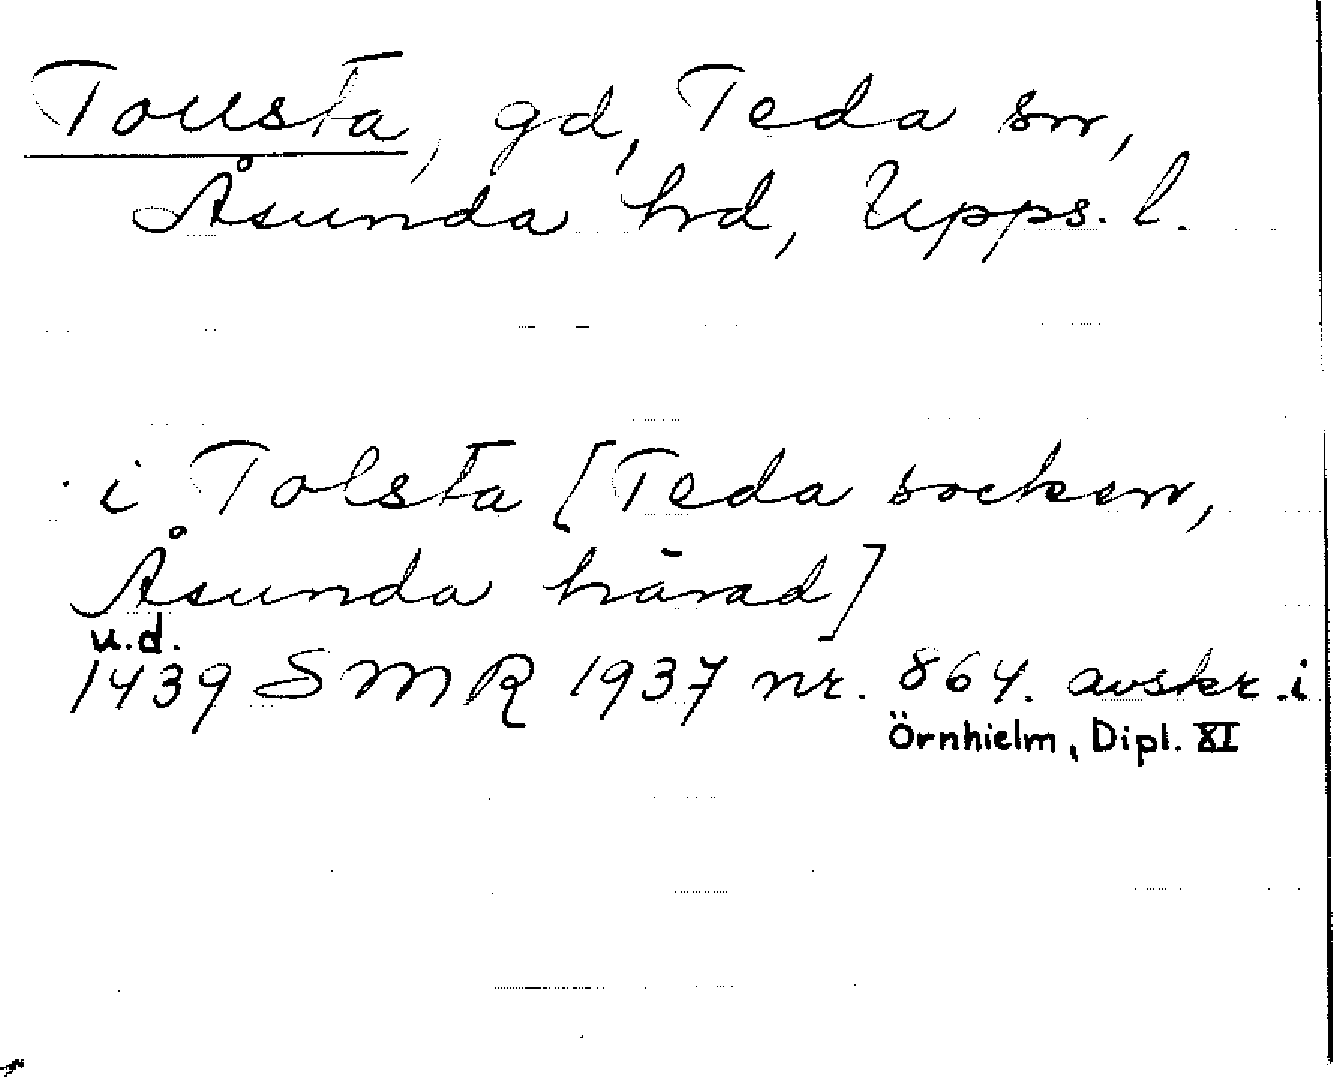 Tollsta, gd, Teda sn,
Åsunda hd, Upps. l.
i Tolsta [Teda socken,
Åsunda härad]
u.d.
1439 SMR 1937 nr. 864. avskr. i
Örnhielm, Dipl. XI